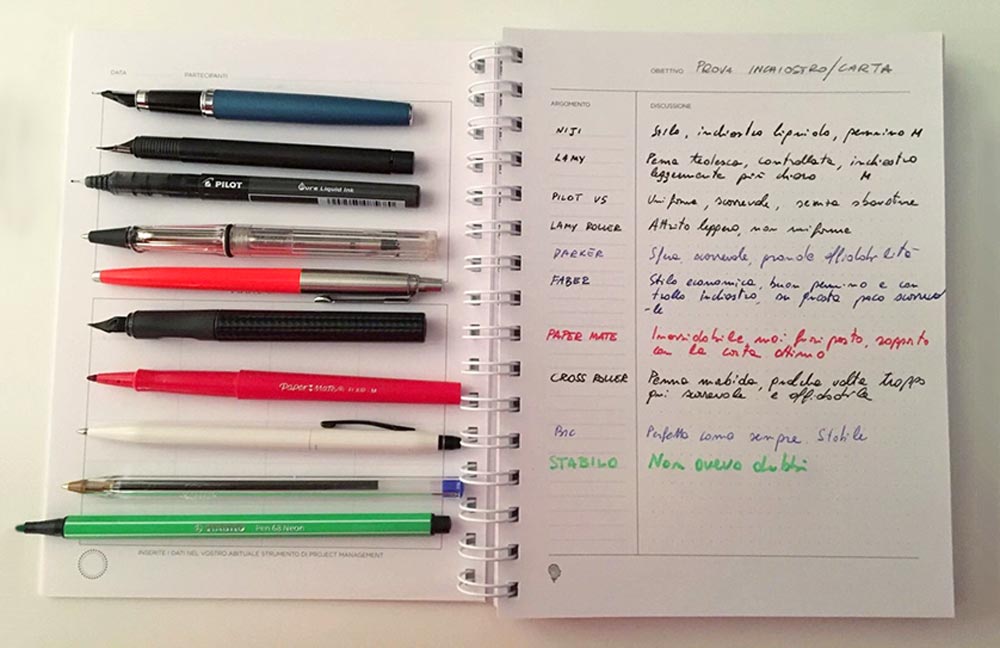 DATA PARTECIPANTI
PILOT Pure Liquid Ink
PAPER:MATE M
Pen 68 Neon
INSERITE I DATI NEL VOSTRO ABITUALE STRUMENTO DI PROJECT MANAGEMENT
OBIETTIVO PROVA INCHIOSTRO/CARTA
ARGOMENTO DISCUSSIONE
NIJI Stilo, inchiostro liquido, pennino M
LAMY Penna tedesca, controllata, inchiostro
leggermente più chiaro M
PILOT V5 Uniforme, scorrevole, senza sbavature
LAMY ROLLER Attrito leggero, non uniforme
PARKER Sfera, scorrevole, grande affidabilità
FABER Stilo economica, buon pennino e con
trollo inchiostro, su questa poco scorrevo
-le
PAPER MATE Inossidabile, mai fuori posto, rapporto
con la carta ottimo
CROSS ROLLER Penna morbida, qualche volta troppo
più scorrevole e affidabile
BIC Perfetta come sempre. Stabile
STABILO Non avevo dubbi